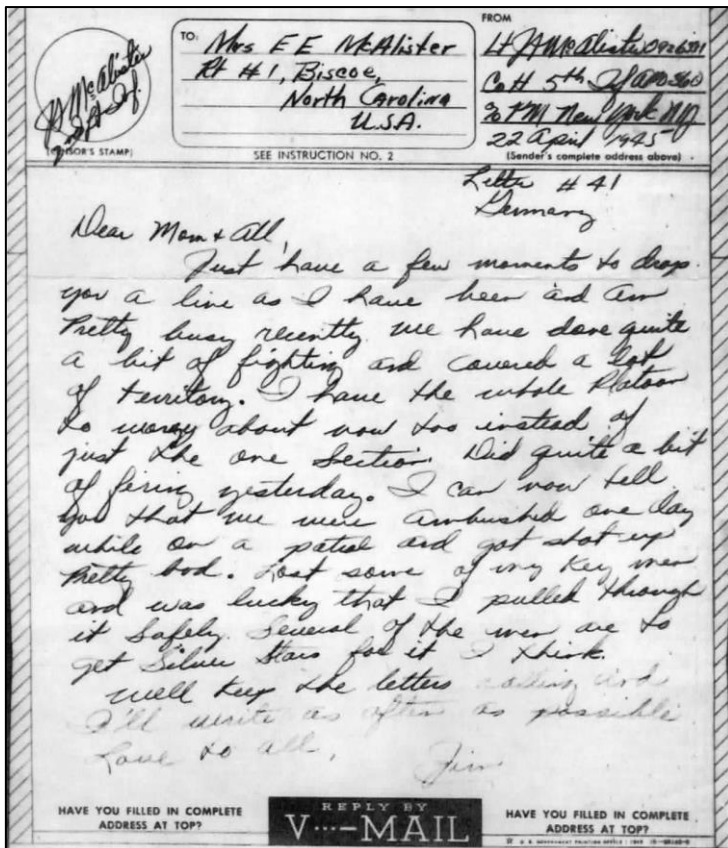 TO:
Mrs E E McAlister
Rt #1, Biscoe,
North Carolina
U.S.A.
FROM
Lt JA McAlister
Co H 5th Inf APO 360
% PM New York NY
22 April 1945
(Sender's complete address above)
JA McAlister
2nd Lt Inf.
(CENSOR'S STAMP)
SEE INSTRUCTION NO. 2
Letter #41
Germany
Dear Mom & All,
Just have a few moments to drop
you a line as I have been and am
Pretty busy recently. We have done quite
a bit of fighting and covered a lot
of territory. I have the whole Platoon
to worry about now too instead of
just the one Section. Did quite a bit
of firing yesterday. I can now tell
you that we were ambushed one day
while on a patrol and got shot up
pretty bad. Lost some of my key men
and was lucky that I pulled through
it safely. Several of the men are to
get Silver Stars for it I think.
Well keep the letters rolling and
I'll write as often as possible
Love to all,
Jim
HAVE YOU FILLED IN COMPLETE
ADDRESS AT TOP?
REPLY BY
V···—MAIL
HAVE YOU FILLED IN COMPLETE
ADDRESS AT TOP?